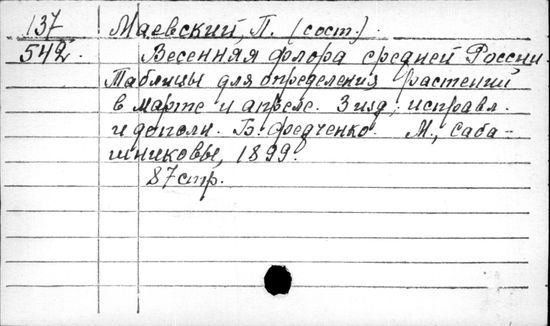 137 Маевский, П. (сост.)
542. Весенняя флора средней России.
Таблицы для определения растений
в марте и апреле. 3 изд., исправл.
и дополн. Б. Федченко. М., Саба-
шниковы, 1899.
87 стр.